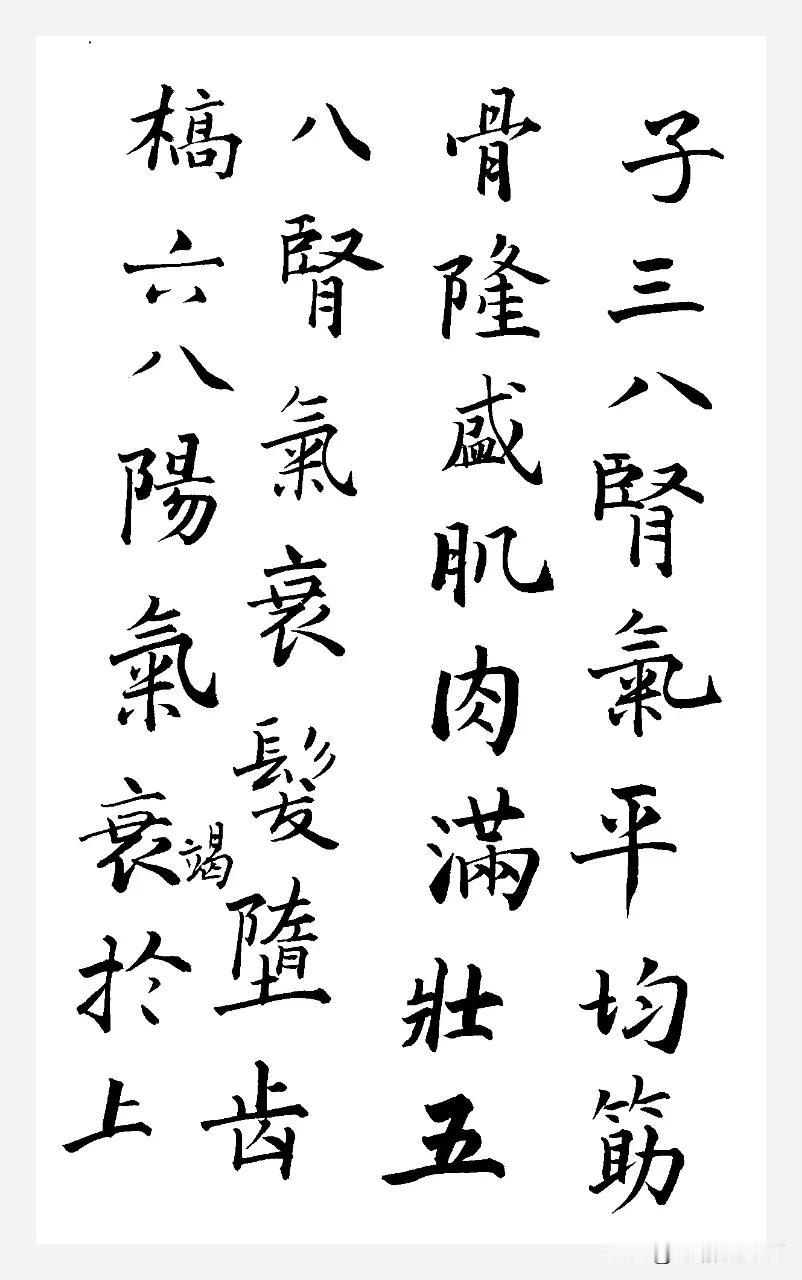 子三八腎氣平均筋
骨隆盛肌肉滿壯五
八腎氣衰髮墮齒
槁六八陽氣衰竭於上